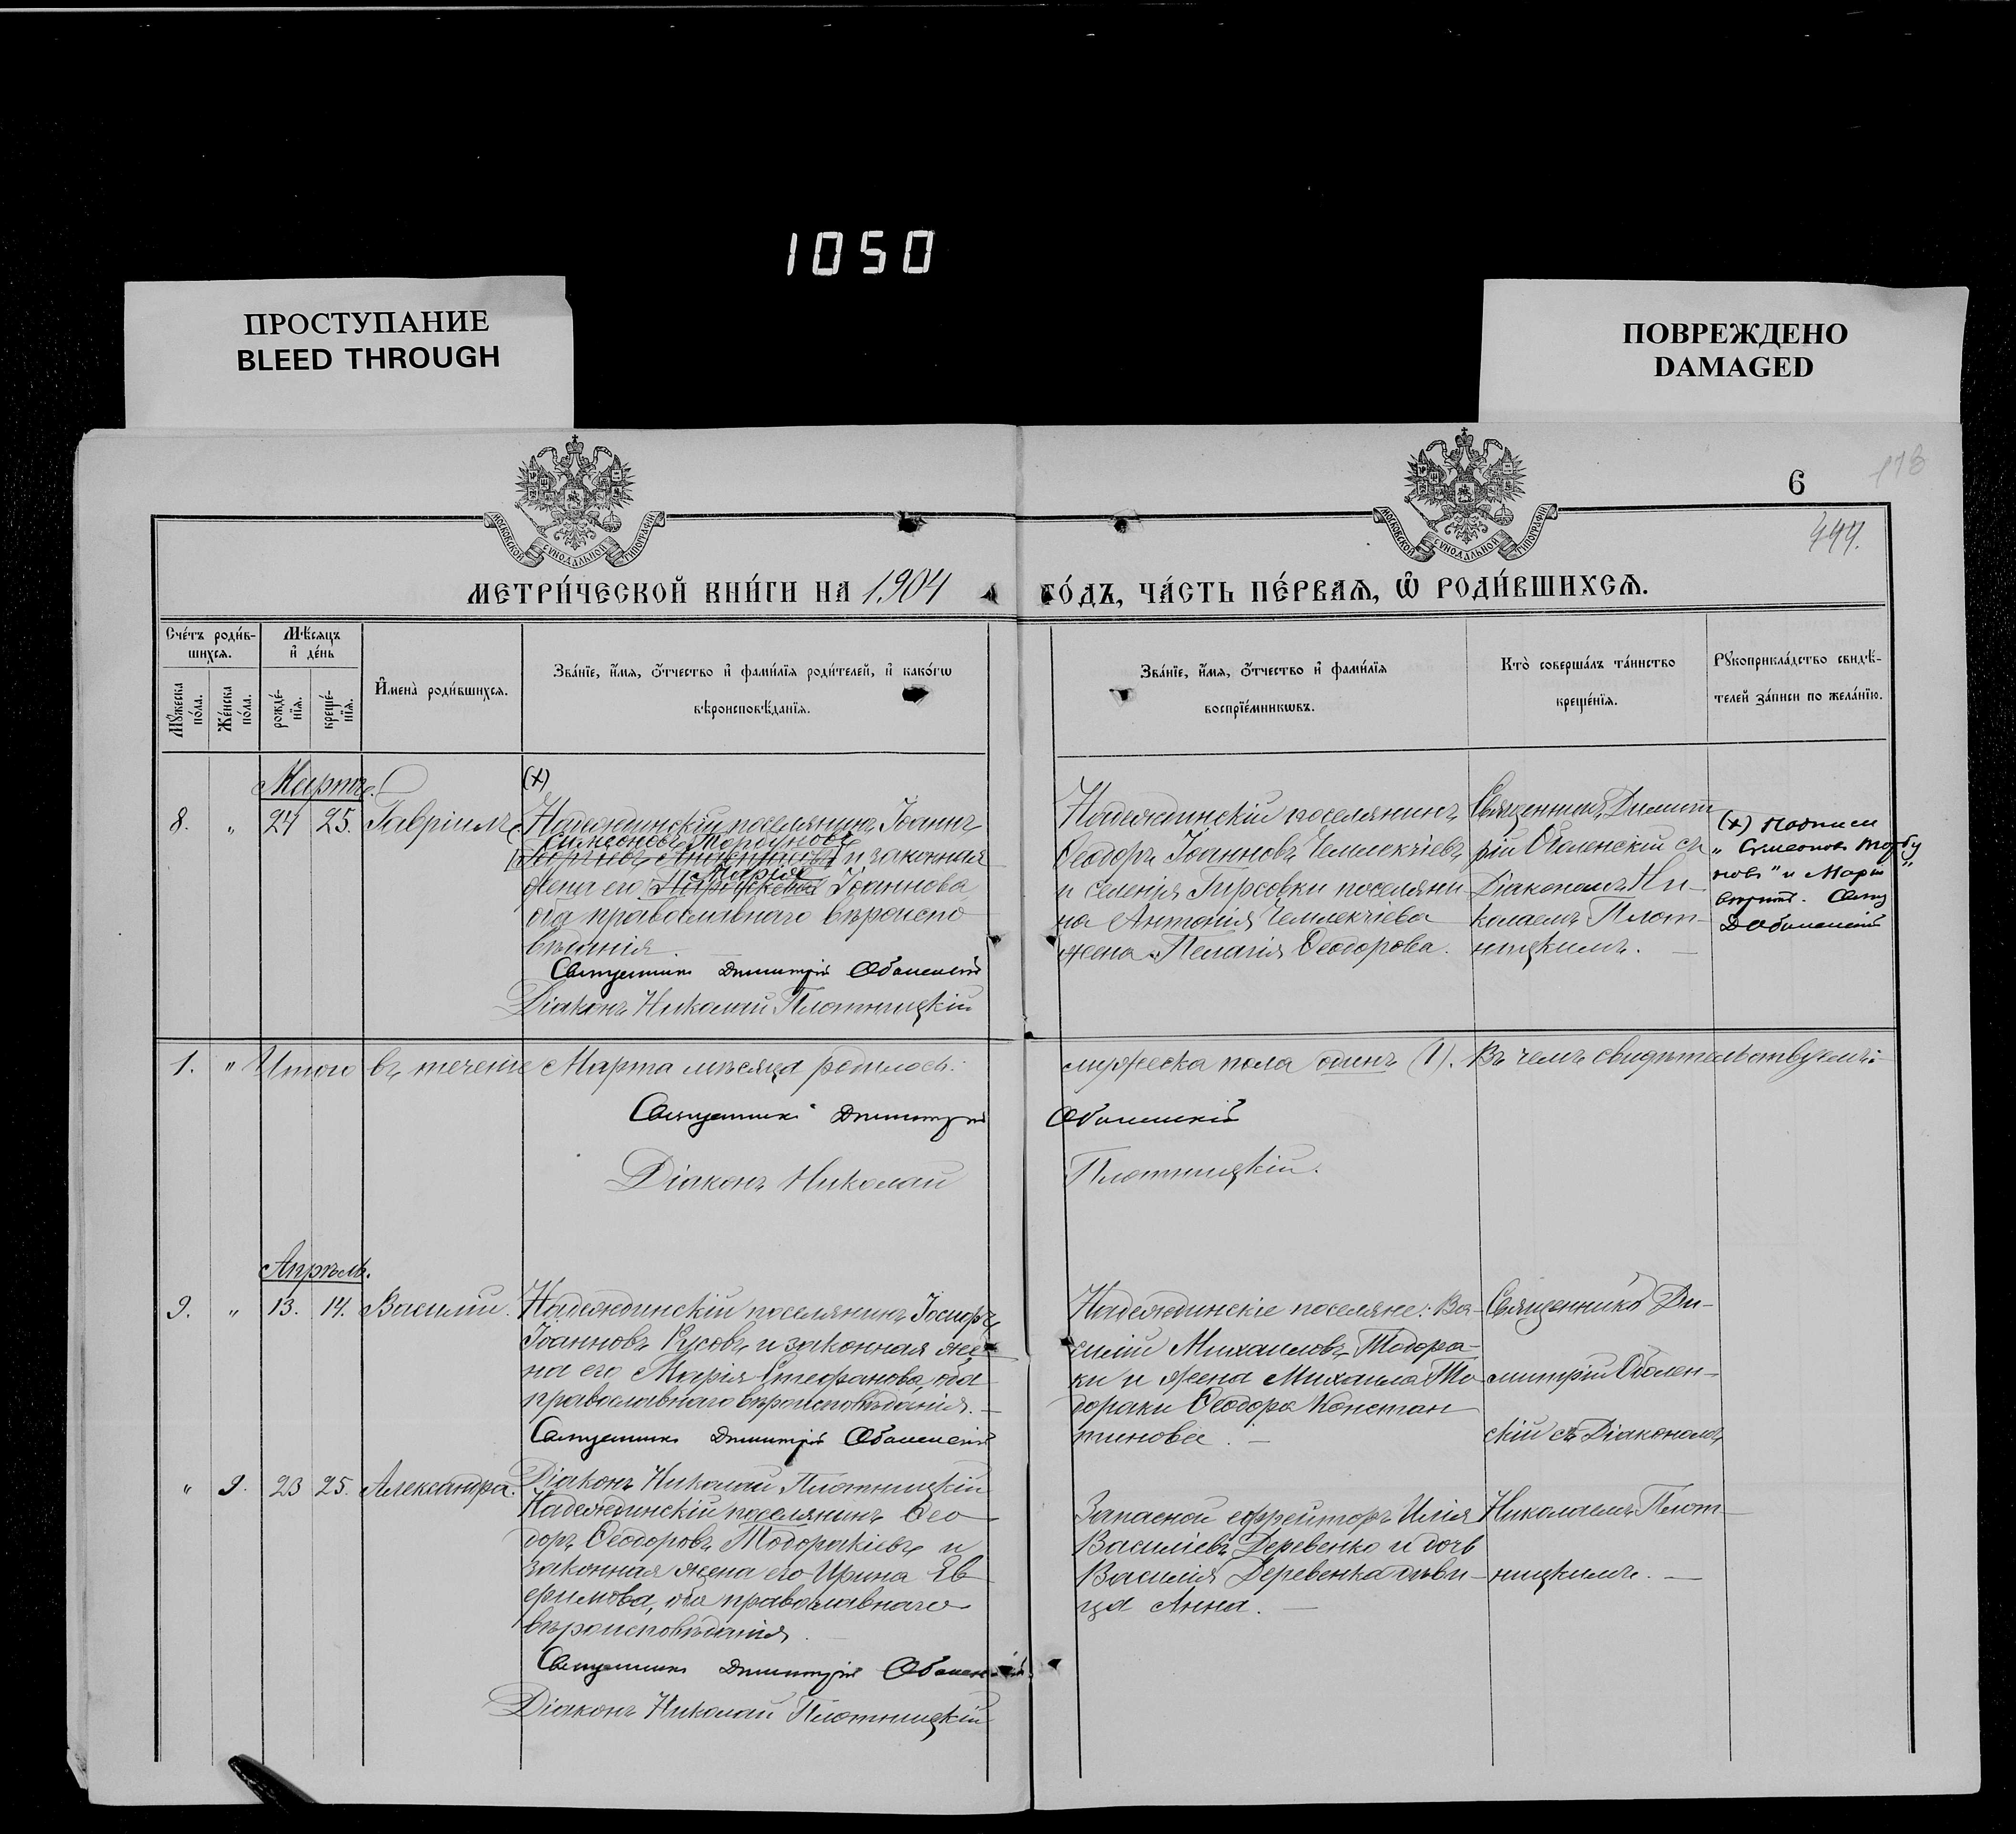 1050
ПРОСТУПАНИЕ
BLEED THROUGH
ПОВРЕЖДЕНО
DAMAGED
6
113
МОСКОВСКОЙ СѴНОДАЛЬНОЙ ТИПОГРАФІИ
МОСКОВСКОЙ СѴНОДАЛЬНОЙ ТИПОГРАФІИ
МЕТРИ́ЧЕСКОЙ КНИ́ГИ НА 1904 ГО́ДЪ, ЧА́СТЬ ПЕ́РВАѦ, Ѡ҆ РОДИ́ВШИХСѦ.
Сче́тъ роди́в-
шихсѧ.
Мꙋ́жеска по́ла.
Же́нска по́ла.
Мѣ́сѧцъ
и҆ де́нь
рожде́-
нїѧ.
креще́-
нїѧ.
И҆мена̀ роди́вшихсѧ.
Зва́нїе, и҆́мѧ, ѻ҆́тчество и҆ фами́лїѧ роди́телей, и҆ како́гѡ
вѣроисповѣ́данїѧ.
Зва́нїе, и҆́мѧ, ѻ҆́тчество и҆ фами́лїѧ
воспрїе́мникѡвъ.
Кто̀ соверша́лъ та́инство
креще́нїѧ.
Рꙋкоприкла́дство свидѣ́-
телей за́писи по жела́нїю.
Мартъ.
8. " 24 25. Гавріилъ
(+)
Надеждинскій поселянинъ Іоаннъ
Симеоновъ Торбуновъ
и законная
жена его Марія Іоаннова,
оба православнаго вѣроиспо-
вѣданія.
Священникъ Димитрій Оболенскій
Діаконъ Николай Плотницкій
Надеждинскій поселянинъ
Ѳеодоръ Іоанновъ Чемлекчіевъ
и селенія Гирсовки поселяни-
на Антонія Чемлекчіева
жена Пелагія Ѳеодорова.
Священникъ Димит-
рій Оболенскій съ
Діакономъ Ни-
колаемъ Плот-
ницкимъ. —
(+) Подписи
„Симеоновъ Торбу
новъ" и Марія
вѣрно. Свящ
Д Оболенскій
1. " Итого въ теченіе Марта мѣсяца родилось: мужеска пола одинъ (1). Въ чемъ свидѣтельствуемъ:
Священникъ Димитрій Оболенскій
Діаконъ Николай Плотницкій.
Апрѣль.
9. " 13. 14. Василій.
Надеждинскій поселянинъ Іосифъ
Іоанновъ Русовъ и законная же-
на его Марія Стефанова, оба
православнаго вѣроисповѣданія. —
Священникъ Димитрій Оболенскій
Діаконъ Николай Плотницкій
Надеждинскіе поселяне: Ва-
силій Михаиловъ Тодора-
ки и жена Михаила То-
дораки Ѳеодора Констан-
тинова. —
Священникъ Ди-
митрій Оболен-
скій съ Діакономъ
Николаемъ Плот-
ницкимъ. —
" 9. 23 25. Александра.
Надеждинскій поселянинъ Ѳео-
доръ Ѳеодоровъ Тодоракіевъ и
законная жена его Ирина Ев-
фимова, оба православнаго
вѣроисповѣданія. —
Священникъ Димитрій Оболенскій
Діаконъ Николай Плотницкій
Запасной ефрейторъ Илія
Василіевъ Деревенко и дочь
Василія Деревенка дѣви-
ца Анна. —